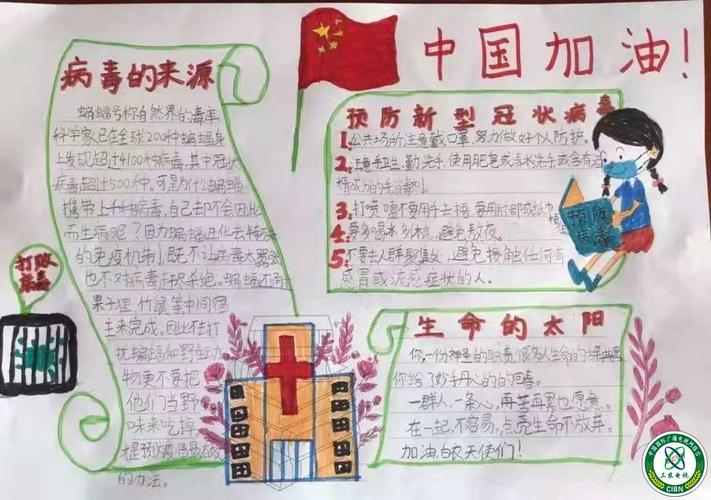 中国加油！
病毒的来源
蝙蝠号称自然界的毒库
科学家已在全球200种蝙蝠身
上发现超过4100种病毒，其中冠状
病毒超过500种。可是为什么蝙蝠
携带上千种病毒，自己却不会因此
而生病呢？因为蝙蝠进化出特殊
的免疫机制，既不让病毒太
也不对病毒赶尽杀绝。蝙蝠
果子狸，竹鼠等中间宿
主来完成。因此不去打
扰蝙蝠和野生动
物更不要把
他们当野
味来吃掉
是预
的办法。
打败
病毒
预防新型冠状病毒
1.公共场所注意戴口罩，努力做好个人防护。
2.注意手卫生，勤洗手，使用肥皂或清水洗手或含有酒
精成分的手消毒
3.打喷嚏不要用手去捂，要用肘部或纸巾
4.要多喝水多 避免熬夜。
5.不要去人群聚集处，避免接触任何有
感冒或流感症状的人。
预防
病毒
生命的太阳
你，一份神圣的职责，很多人生命的
你给了妙手丹心的的回春。
一群人，一条心，再苦再累也愿意。
在一起，不容易，点亮生命不放弃。
加油，白衣天使们！
三农电视
CIBN